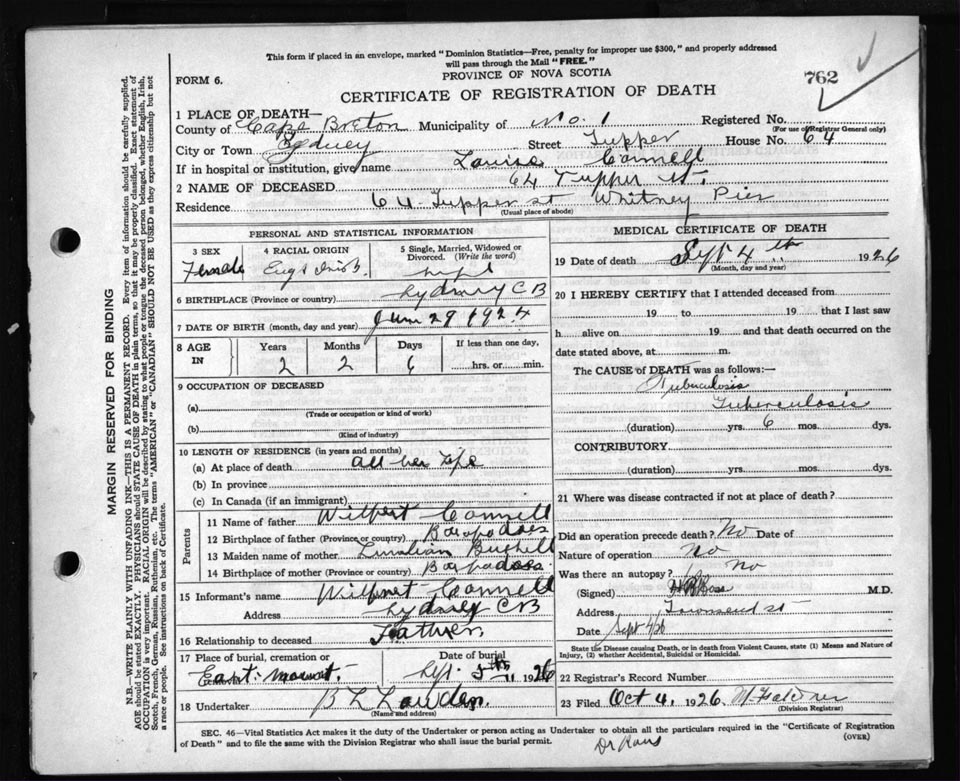 This form if placed in an envelope, marked "Dominion Statistics—Free, penalty for improper use $300," and properly addressed
will pass through the Mail "FREE."
FORM 6.
PROVINCE OF NOVA SCOTIA
762
CERTIFICATE OF REGISTRATION OF DEATH
1 PLACE OF DEATH—
Registered No.
(For use of Registrar General only)
County of Cape Breton Municipality of No. 1
City or Town Sydney Street Tupper House No. 64
If in hospital or institution, give name Louise Connell
2 NAME OF DECEASED 64 Tupper St.
Residence 64 Tupper st Whitney Pier
(Usual place of abode)
PERSONAL AND STATISTICAL INFORMATION
3 SEX Female
4 RACIAL ORIGIN
5 Single, Married, Widowed or Divorced. (Write the word)
6 BIRTHPLACE (Province or country) Sydney C B
7 DATE OF BIRTH (month, day and year) June 29 1924
8 AGE IN Years 2 Months 2 Days 6 If less than one day, hrs. or min.
9 OCCUPATION OF DECEASED
(a)
(Trade or occupation or kind of work)
(b)
(Kind of industry)
10 LENGTH OF RESIDENCE (in years and months)
(a) At place of death all her life
(b) In province
(c) In Canada (if an immigrant)
Parents
11 Name of father Connell
12 Birthplace of father (Province or country) Barbados
13 Maiden name of mother
14 Birthplace of mother (Province or country) Barbados
15 Informant's name Connell
Address Sydney CB
16 Relationship to deceased Father
17 Place of burial, cremation or removal
Date of burial Sept. 5th 1926
18 Undertaker
(Name and address)
MEDICAL CERTIFICATE OF DEATH
19 Date of death Sept 4th 1926
(Month, day and year)
20 I HEREBY CERTIFY that I attended deceased from
19 to 19 that I last saw
h alive on 19 and that death occurred on
date stated above, at m.
The CAUSE of DEATH was as follows:—
Tuberculosis
(duration) yrs. 6 mos. dys.
CONTRIBUTORY.
(duration) yrs. mos. dys.
21 Where was disease contracted if not at place of death?
Did an operation precede death? No Date of
Nature of operation No
Was there an autopsy? No
(Signed) M.D.
Address Townsend st
Date Sept 4/26
State the Disease causing Death, or in death from Violent Causes, state (1) Means and Nature of
Injury, (2) whether Accidental, Suicidal or Homicidal.
22 Registrar's Record Number
23 Filed Oct 4, 1926
(Division Registrar)
SEC. 46—Vital Statistics Act makes it the duty of the Undertaker or person acting as Undertaker to obtain all the particulars required in the "Certificate of Registration
of Death" and to file the same with the Division Registrar who shall issue the burial permit.
(OVER)
MARGIN RESERVED FOR BINDING
N.B.—WRITE PLAINLY WITH UNFADING INK—THIS IS A PERMANENT RECORD. Every item of information should be carefully supplied.
AGE should be stated EXACTLY. PHYSICIANS should STATE CAUSE OF DEATH in plain terms, so that it may be properly classified. Exact statement of
OCCUPATION is very important. RACIAL ORIGIN will be described by stating to what people or tongue the deceased person belonged, whether English, Irish,
Scotch, French, German, Russian, Ruthenian, etc. The terms "AMERICAN" or "CANADIAN" SHOULD NOT BE USED as they express citizenship but not
a race or people. See instructions on back of Certificate.